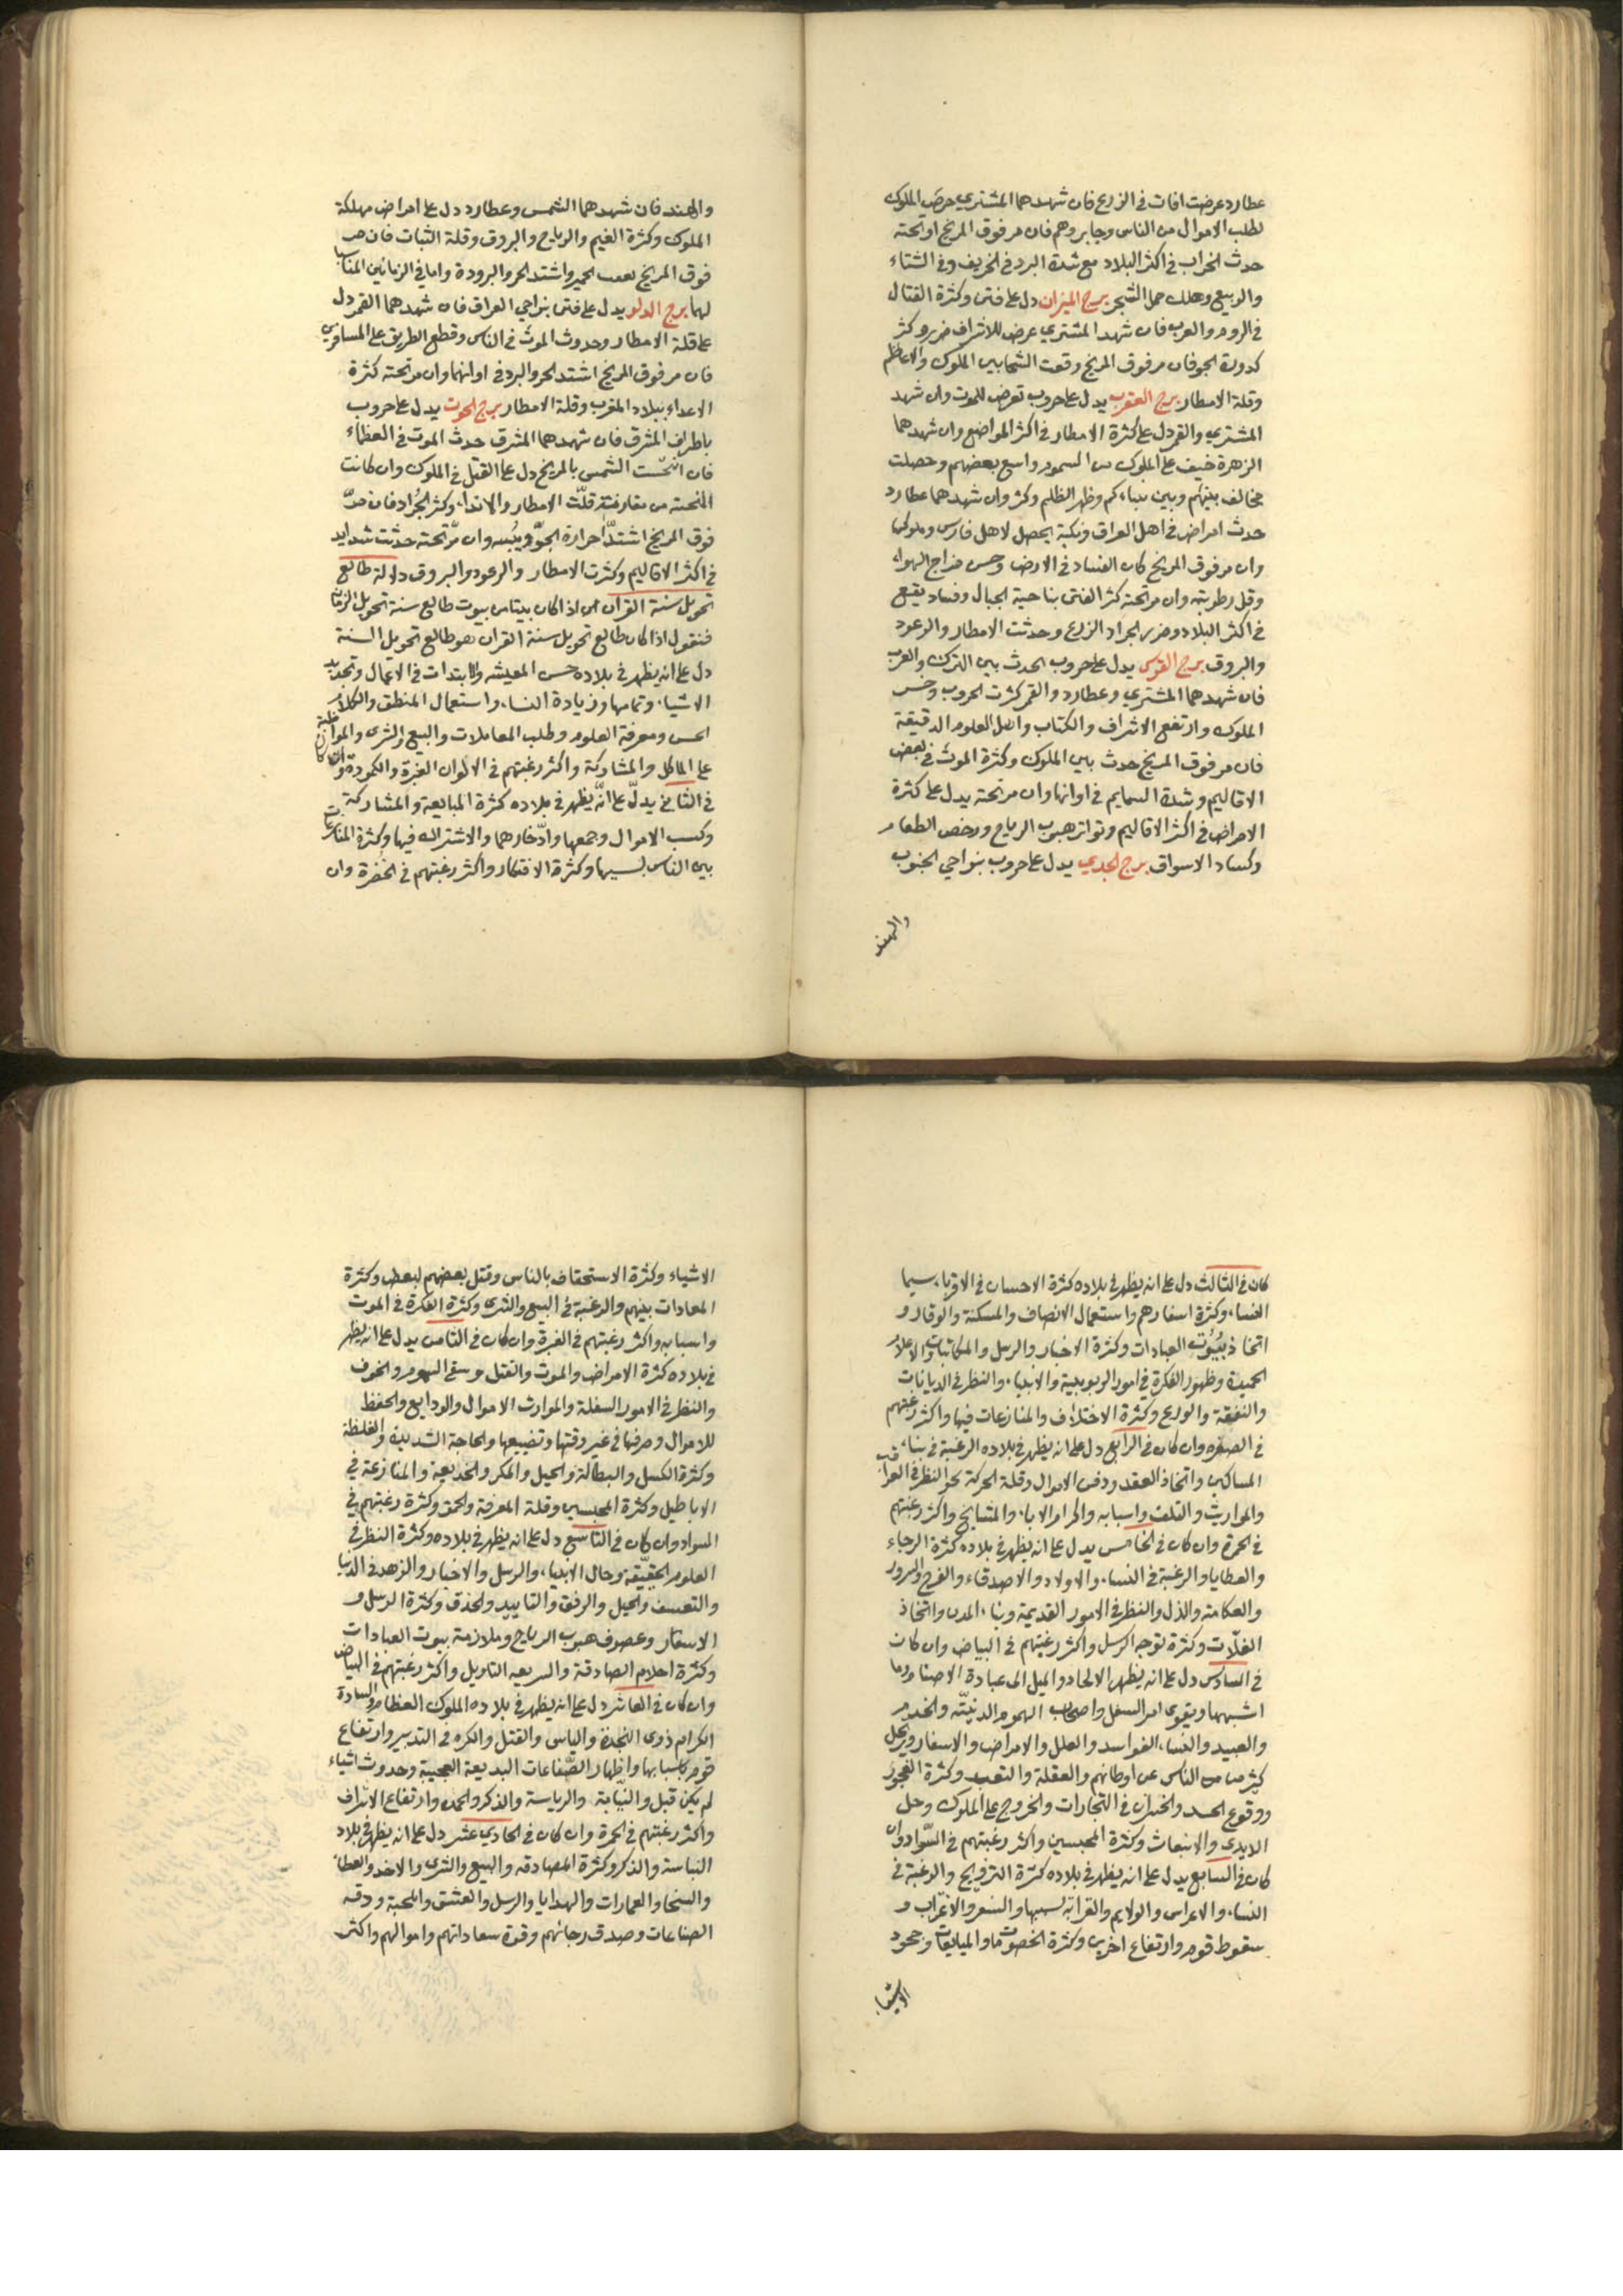 عطارد عرضت افات في الزرع فان شهدهما المشتري حرص الملوك
لطلب الاموال من الناس وجابروهم فان مر فوق المريخ او تحته
حدث الخراب في اكثر البلاد مع شدة البرد في الخريف وفي الشتاء
والربيع وهلك حمل الشجر برج الميزان دل على فتن وكثرة القتال
في الروم والعرب فان شهد المشتري عرض للاشراف ضرر وكثر
كدورة الجو فان مر فوق المريخ وقعت الشحنا بين الملوك والاعاظم
وقلة الامطار برج العقرب يدل على حروب تعرض للموت وان شهد
المشتري والقمر دل على كثرة الامطار في اكثر المواضع وان شهدهما
الزهرة خيف على الملوك من السموم بعضهم وحصلت
مخالف بينهم وبين وظهر الظلم وكثر وان شهدهما عطارد
حدث امراض في اهل العراق ونكبة يحصل لاهل فارس وملوكها
وان مر فوق المريخ كان الفساد في الارض وحسن مزاج الهواء
وقل رطوبته وان مر تحته كثر الفتن بناحية الجبال وفساد يقع
في اكثر البلاد وضرر الجراد الزرع وحدثت الامطار والرعود
والبروق برج القوس يدل على حروب تحدث بين الترك والعرب
فان شهدهما المشتري وعطارد والقمر كثرت الحروب وحسن
الملوك وارتفع الاشراف والكتاب واهل العلوم الدقيقة
فان مر فوق المريخ حدث بين الملوك وكثرة الموت في بعض
الاقاليم وشدة السمايم في اوانها وان مر تحته يدل على كثرة
الامراض في اكثر الاقاليم وتواتر هبوب الرياح ورخص الطعام
وكساد الاسواق برج الجدي يدل على حروب بنواحي الجنوب
والهند
والهند فان شهدهما الشمس وعطارد دل على امراض مهلكة
الملوك وكثرة الغيم والرياح والبروق وقلة النبات فان مر
فوق المريخ الحمير واشتد الحر والبرودة واما في الزمانين المناسبا
لهما برج الدلو يدل على فتن بنواحي العراق فان شهدهما القمر دل
على قلة الامطار وحدوث الموت في الناس وقطع الطريق على المسافرين
فان مر فوق المريخ اشتد الحر والبرد في اوانهما وان مر تحته كثرة
الاعداء ببلاد المغرب وقلة الامطار برج الحوت يدل على حروب
باطراف المشرق فان شهدهما المشرق حدث الموت في العظماء
فان انتحست الشمس بالمريخ دل على القتل في الملوك وان كانت
المنحسة من مقارنته قلّت الامطار والانداء وكثر الجراد فان مرّ
فوق المريخ اشتدّ حرارة الجوّ ويبسه وان مرّ تحته حدثت شدايد
في اكثر الاقاليم وكثرت الامطار والرعود والبروق دلالة طالع
تحويل سنة القران من اذا كان بيتا من بيوت طالع سنة تحويل الزمان
فنقول اذا كان طالع تحويل سنة القران هو طالع تحويل السنة
دل على انه يظهر في بلاده حسن المعيشة والابتدات في الاعمال وتجديد
الاشياء وتمامها وزيادة النساء واستعمال المنطق والكلام
الحسن ومعرفة العلوم وطلب المعاملات والبيع والشرى والمواظبة
على الماكل والمشاركة واكثر رغبتهم في الالوان الغبرة والكمودة وان كان
في الثاني يدلّ على انّه يظهر في بلاده كثرة المبايعة والمشاركة
وكسب الاموال وجمعها وادّخارها والاشتراك فيها وكثرة المنازعات
بين الناس بسببها وكثرة الافتكار واكثر رغبتهم في الخضرة وان
كان في الثالث دل على انه يظهر في بلاده كثرة الاحسان في الاقرباء سيما
النساء وكثرة اسفارهم واستعمال الانصاف والمسكنة والوقار و
اتخاذ بيوت العبادات وكثرة الاخبار والرسل والمكاتبات والاعلام
الحميدة وظهور الفكرة في امور الربوبية والانبياء والنظر في الديانات
والنفقة والورع وكثرة الاختلاف والمنازعات فيها واكثر رغبتهم
في الصفرة وان كان في الرابع دل على انه يظهر في بلاده الرغبة في بناء
المساكن واتخاذ العقد ودفن الاموال وقلة الحركة نحو النظر في العواقب
والمواريث والتلف واسبابه واكرام الاباء والمشايخ واكثر رغبتهم
في الحمرة وان كان في الخامس يدل على انه يظهر في بلاده كثرة الرجاء
والعطايا والرغبة في النساء والاولاد والاصدقاء والفرح والسرور
والعكامة والذل والنظر في الامور القديمة وبناء المدن واتخاذ
الغلّات وكثرة توجه الرسل واكثر رغبتهم في البياض وان كان
في السادس دل على انه يظهر الالحاد والميل الى عبادة الاصنام وما
اشبهها ويقوى امر السفل واصحاب الهموم الدنيّة والخدم
والعبيد والنساء الفواسد والعلل والامراض والاسفار ويرحل
كثير من الناس عن اوطانهم والعقلة والتعب وكثرة الفجور
ووقوع الحسد والخسران في التجارات والخروج على الملوك وحل
الايدي والانبعاث وكثرة المحبسين واكثر رغبتهم في السّواد وان
كان في السابع يدل على انه يظهر في بلاده كثرة التزويج والرغبة في
النساء والاعراس والولايم والقرابة بسببها والسفر والاغتراب و
سقوط قوم وارتفاع اخرين وكثرة الخصومات والمبايعات وجحود
الاشياء
الاشياء وكثرة الاستخفاف بالناس وقتل بعضهم لبعض وكثرة
المعادات بينهم والرغبة في البيع والشرى وكثرة الفكرة في الموت
واسبابه واكثر رغبتهم في الغبرة وان كان في الثامن يدل على انه يظهر
في بلاده كثرة الامراض والموت والقتل وسقي السموم والخوف
والنظر في الامور السفلة والموارث الاموال والودايع والحفظ
للاموال وصرفها في غير وقتها وتضييعها والحاجة الشديدة والغلظة
وكثرة الكسل والبطالة والحيل والمكر والخديعة والمنازعة في
الاباطيل وكثرة المحبسين وقلة المعرفة والحمق وكثرة رغبتهم في
السواد وان كان في التاسع دل على انه يظهر في بلاده وكثرة النظر في
العلوم الحقيّقة وحال الانبياء والرسل والاخبار والزهد في الدنيا
والتعسف والحيل والرفق والتاييد والحذق وكثرة الرسل و
الاسفار وعصوف هبوب الرياح وملازمة بيوت العبادات
وكثرة احلام الصادقة والسريعة التاويل واكثر رغبتهم في البياض
وان كان في العاشر دل على انه يظهر في بلاده الملوك العظام والسادة
الكرام ذوى النجدة والباس والقتل والكره في التدبير وارتفاع
قوم باسبابها واظهار الصّناعات البديعة العجيبة وحدوث اشياء
لم يكن قبل والنّيابة والرياسة والذكر والحمد وارتفاع الاشراف
واكثر رغبتهم في الحمرة وان كان في الحادي عشر دل على انه يظهر في بلاده
النباسة والذكر وكثرة المصادقة والبيع والشرى والاخذ والعطاء
والسخا والعمارات والهدايا والرسل والعشق والمحبة ودقة
الصناعات وصدق رجائهم وقوة سعاداتهم واموالهم واكثر